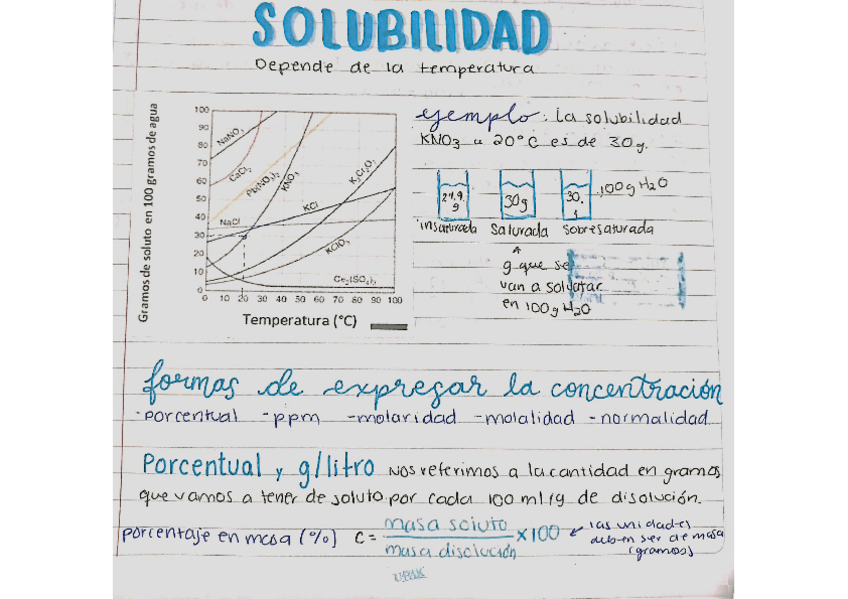 SOLUBILIDAD
Depende de la temperatura
ejemplo: la solubilidad
KNO3 a 20°C es de 30g.
Gramos de soluto en 100 gramos de agua
100
90
80
70
60
50
40
30
20
10
0
NaNO3
CaCl2
Pb(NO3)2
KNO3
K2Cr2O7
KCl
NaCl
KClO3
Ce2(SO4)3
0 10 20 30 40 50 60 70 80 90 100
Temperatura (°C)
29.9 g
30g
100g H2O
insaturada saturada sobresaturada
g que se
van a solvatar
en 100g H2O
formas de expresar la concentración
-porcentual -ppm -molaridad -molalidad -normalidad
Porcentual y g/litro Nos referimos a la cantidad en gramos
que vamos a tener de soluto por cada 100 ml/g de disolución.
porcentaje en masa (%) C = masa soluto / masa disolución x100
las unidades
deben ser de masa
(gramos)